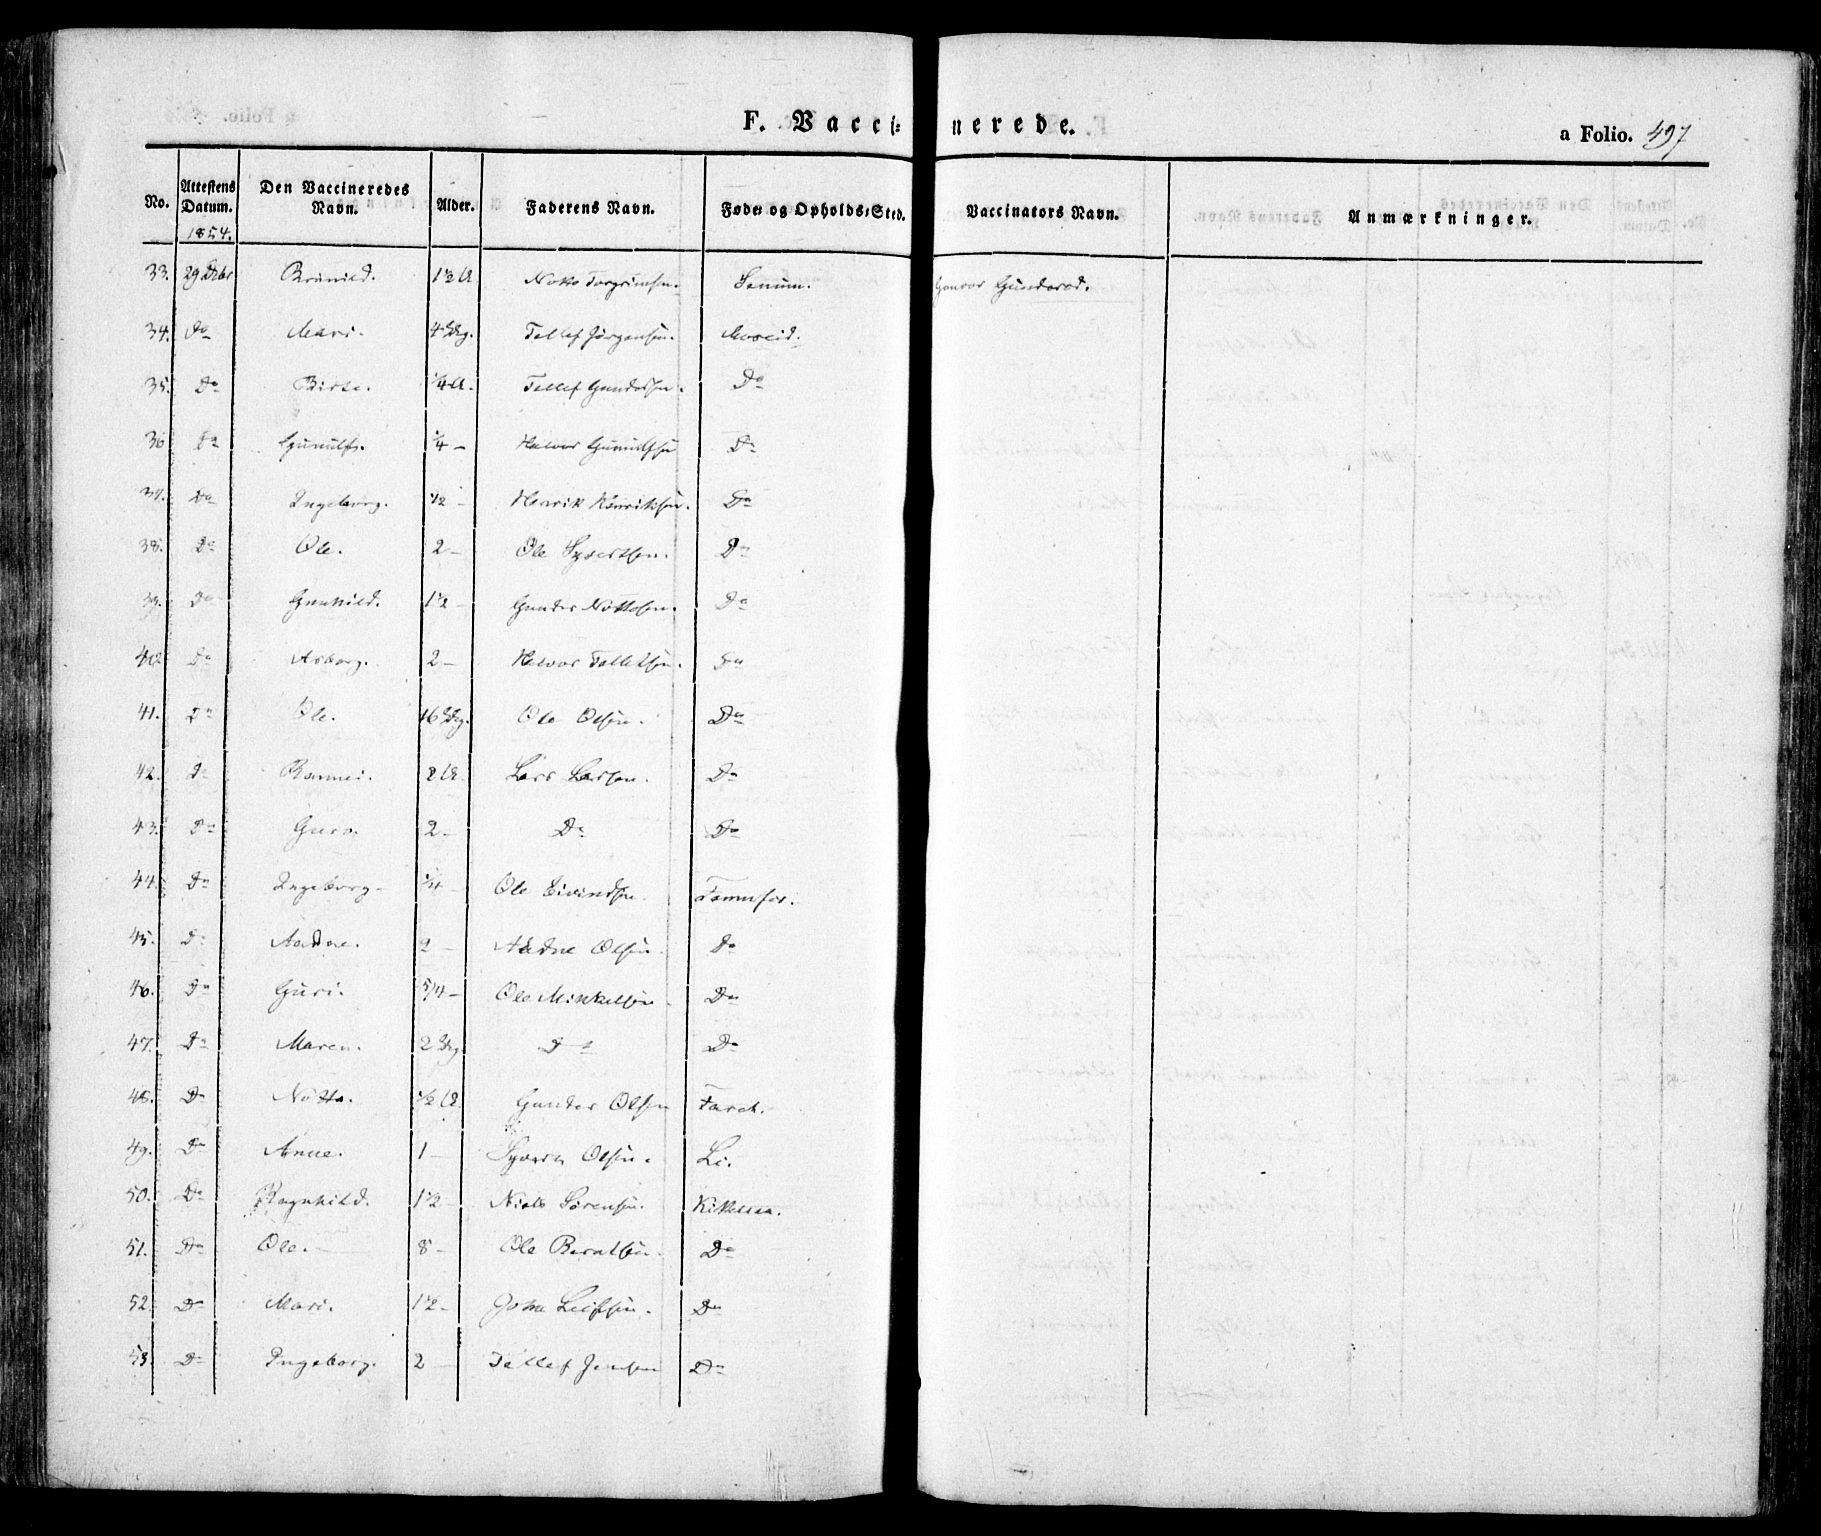 F. Vaccinerede.
a Folio. 497
No. | Attestens Datum. 1854. | Den Vaccineredes Navn. | Alder. | Faderens Navn. | Føde- og Opholds-Sted. | Vaccinators Navn. | Anmærkninger.
33. | 29 | | 1½ A | Notto Torgrimsen. | Senum. | Gunvor
34. | Do | Mari. | | Tellef Jørgensen. | Moseid.
35. | Do | Birte. | ¼ A. | Tellef Gundersen. | Do
36 | Do | Gunulf. | ¼ - | Halvor Gunulfsen | Do
37. | Do | Ingeborg. | ½ - | Henrik Henriksen. | Do
38. | Do | Ole. | 2 - | Ole Syvertsen. | Do
39. | Do | Gunhild. | 1½ - | Gunder Nottosen. | Do
40 | Do | Asborg. | 2 - | Halvor Tellefsen. | Do
41. | Do | Ole. | | Ole Olsen. | Do
42. | Do | | 2 A. | Lars Larsen. | Do
43. | Do | Guro. | 2 - | Do | Do
44. | Do | Ingeborg. | ¼ - | Ole Eivindsen. |
45. | Do | Aadne. | 2 - | Aadne Olsen. | Do
46. | Do | Guri. | 5/4 - | Ole Mikkelsen. | Do
47. | Do | Maren. | 2 | Do | Do
48. | Do | Notto. | ½ A | Gunder Olsen |
49. | Do | Anne. | 1 - | Syvert Olsen. | Li.
50. | Do | Ragnhild. | 1½ - | Niels Sørensen. | Kittelsaa.
51. | Do | Ole. | 8 - | Ole Berntsen. | Do
52. | Do | Mari. | 1½ - | John Leifsen. | Do
53. | Do | Ingeborg. | 2 | Tellef Jensen | Do